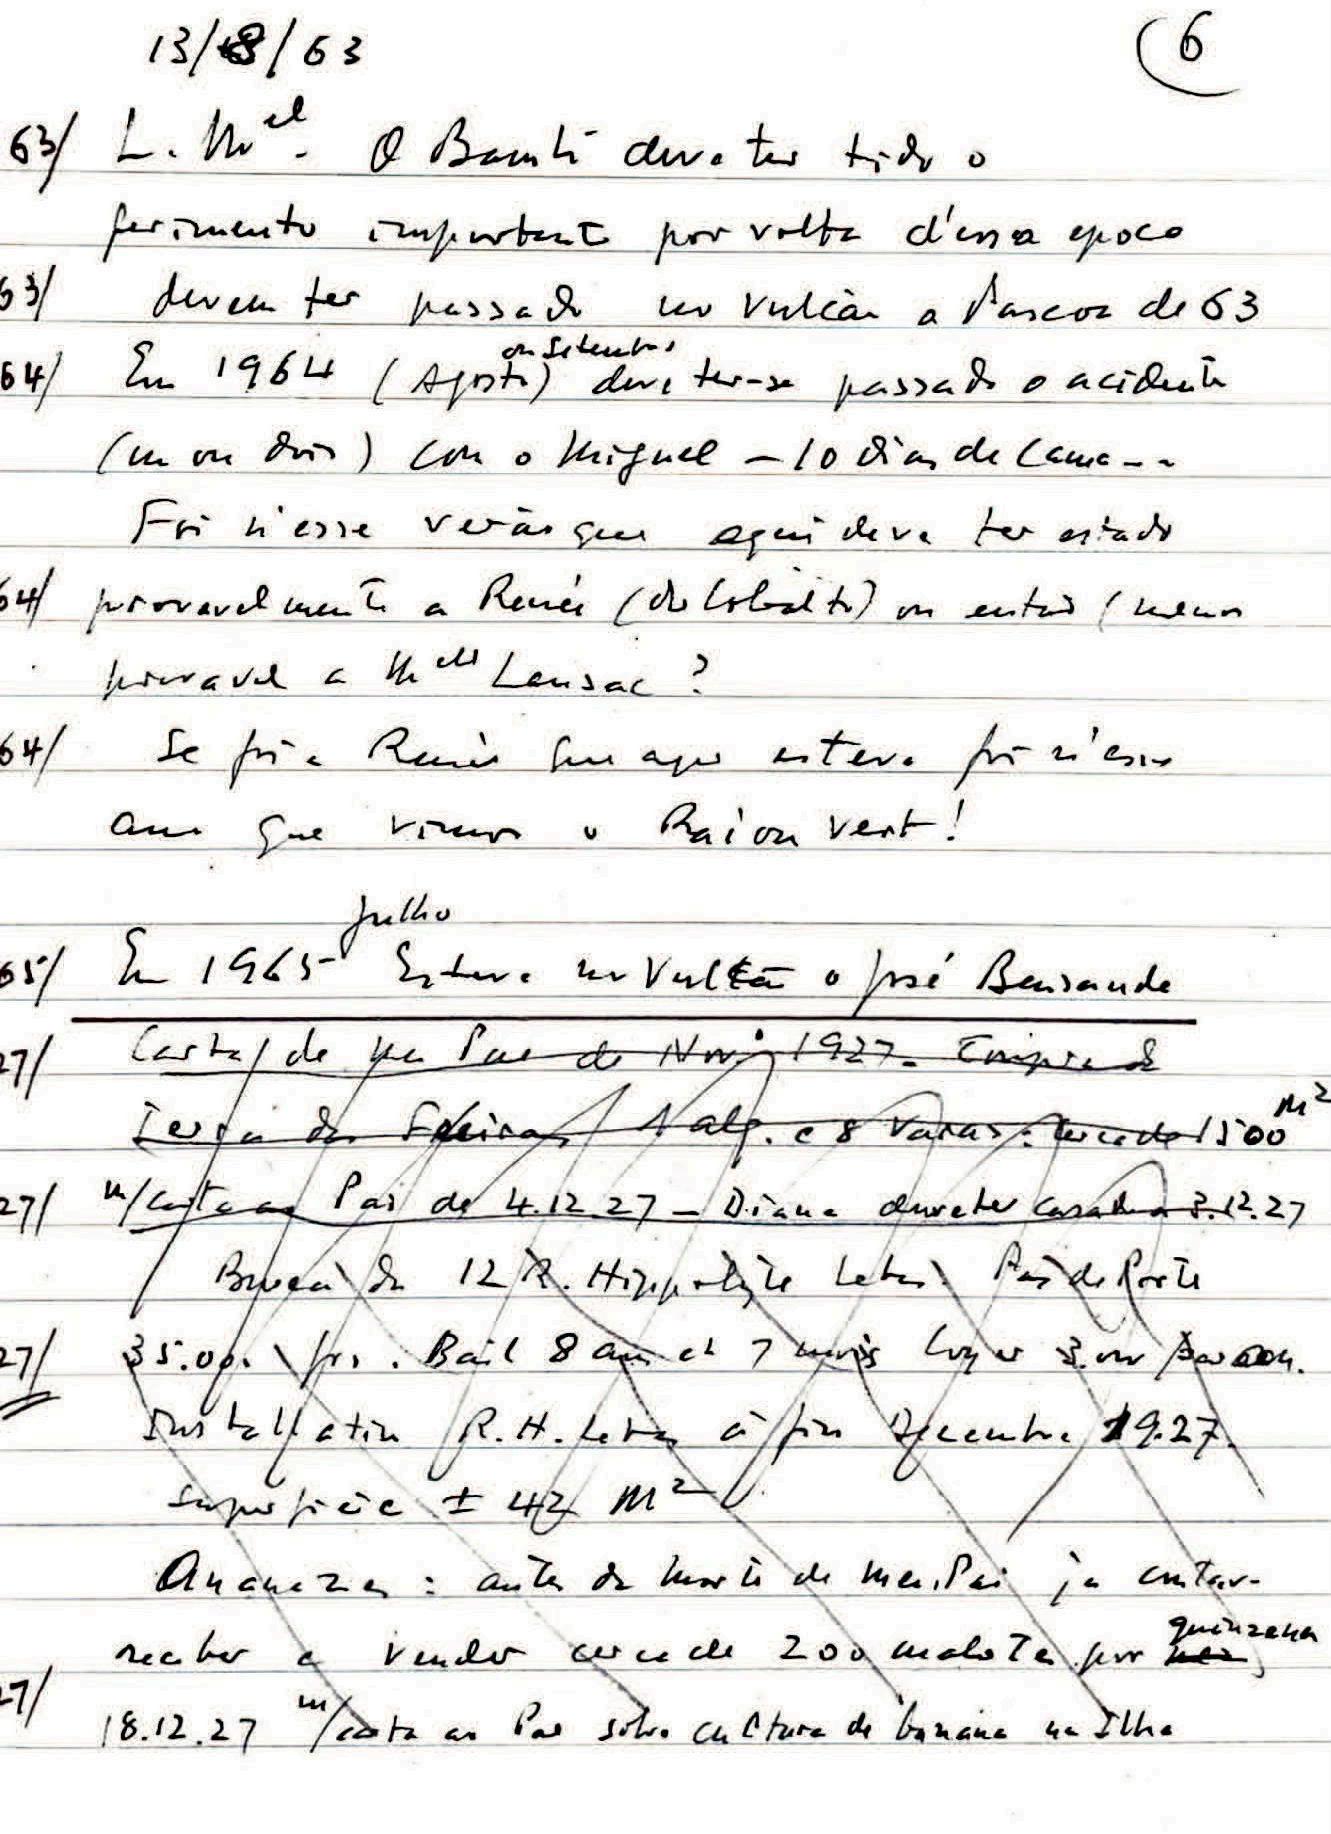 13/8/63 6
63/ L. Mel. O Bambi deve ter tido o
ferimento importante por volta d'essa epoca
63/ devem ter passado no Vulcão a Pascoa de 63
ou Setembro
64/ Em 1964 (Agosto) deve ter-se passado o acidente
(um ou dois) com o Miguel – 10 dias de cama --
Foi n'esse verão que aqui deve ter estado
64/ provavelmente a Renée (do Cobalto) ou então (menos
provavel a Melle Lansac ?
64/ Se foi a Renée que aqui esteve foi n'esse
ano que vimos o Raion vert!
Julho
65/ Em 1965 Esteve no Vulcão o José Bensaude
27/ Carta/ de meu Pae de Nov. 1927. Compra de
Terra das Feiras 1 alq. e 8 varas: cerca de 1500 M2
27/ m/carta ao Pai de 4.12.27 – Diana deve ter casado a 3.12.27
Bureau du 12 R. Hippolyte Lebas. Pas de Porte
27/ 35.00. frs. Bail 8 ans et 7 mois loyer 3.000 par an.
Installation R.H. Lebas à fin Decembre 1927.
Superficie ± 42 M2
Ananazes : antes da morte de meu Pai ja contava
receber e vender cerca de 200 malotes por mez quinzena
27/ 18.12.27 m/carta ao Pae sobre cultura de banana na Ilha